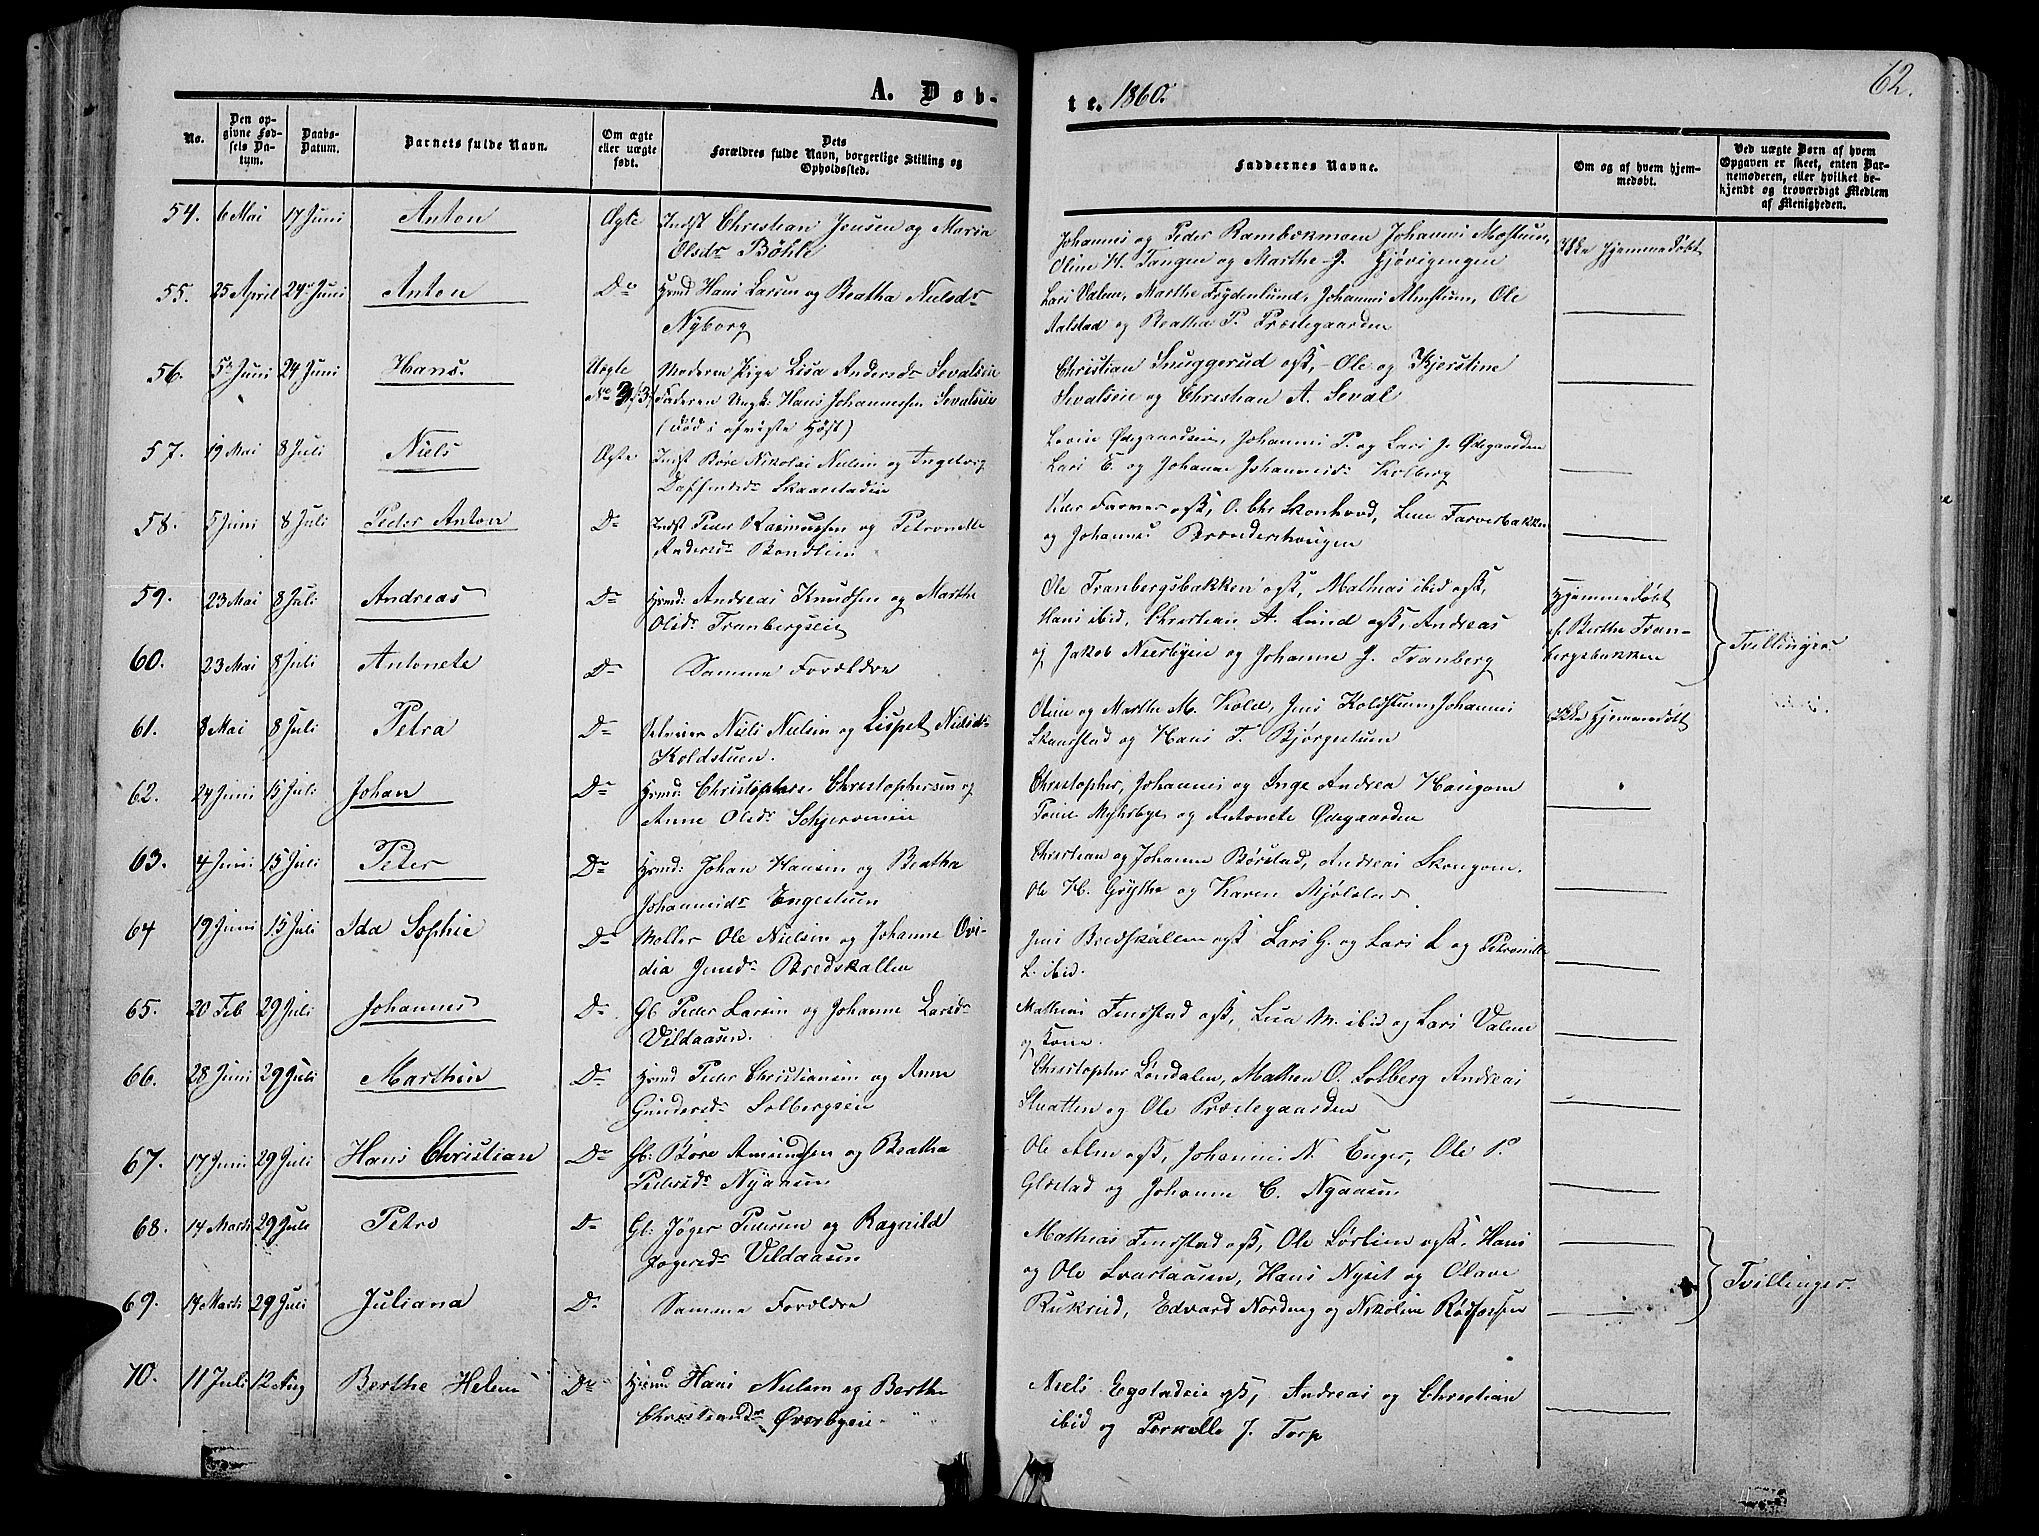 62.
A. Døb-
te. 1860.
No.
Den opgivne Fødsels Datum.
Daabs-Datum.
Barnets fulde Navn.
Om ægte eller uægte født.
Dets Forældres fulde Navn, borgerlige Stilling og Opholdssted.
Faddernes Navne.
Om og af hvem hjemmedøbt.
Ved uægte Børn af hvem Opgaven er skeet, enten Barnemoderen, eller hvilket bekjendt og troværdigt Medlem af Menigheden.
54. 6 Mai 17 Juni Anton Ægte Indst Christian Jensen og Maria
Olsdr Böhle
Johannes og Peder Johannes
Oline H. Tangen og Marthe J. Gjøvigengen
Ikke Hjemmedøbt
55. 25 April 24 Juni Anton Do Hmd Hans Larsen og Beatha Nielsdr
Nyborg
Lars Valem, Marthe Frydenlund, Johannes Almstuen, Ole
Aalstad og Beatha P. Præstegaarden
56. 5 Juni 24 Juni Hans. Uægte Moderen Pige Lisa Andersdr Sevalseie
Faderen Ungk: Hans Johannessen Sevalseie
(død i afvigte Høst)
Christian Snuggerud og Ole og Kjerstine
Sevalseie og Christian A. Seval
57. 19 Mai 8 Juli Niels Ægte Indst Børe Nikolai Nielsen og Ingeborg
Skaarstadeie
Johannes P. og Lars J. Ødegaarden
Lars E. og Johanne Johannesdr Kolberg
58. 5 Juni 8 Juli Peder Anton Do Indst Peder Rasmussen og Petronelle
Andersdr Bondlien
Lene Farverbakken
og Johannes Brænderihaugen
59. 23 Mai 8 Juli Andreas Do Hmd: Andreas Knudsen og Marthe
Olsdr Tranbergseie
Ole Tranbergsbakken og Mathias ibid og
Hans ibid, Christian A. Lund og Andreas
Hjemmedøbt
af Berthe Tran-
bergsbakken
Tvillinger
60. 23 Mai 8 Juli Antonete Do Samme Forældre
og Jakob Neerbyeie og Johanne J. Tranberg
61. 8 Mai 8 Juli Petra Do Niels Nielsen og Lispet Nielsdr
Koldstuen.
Oline og Marthe M. Kolde, Jens Koldstuen Johannes
Skaarstad og Hans T. Bjørgestuen
Ikke Hjemmedøbt
62. 24 Juni 15 Juli Johan Do Hmd: Christopher Christophersen og
Anne Olsdr
Christopher, Johannes og Inge Andrea Haugom
Tonie Myhrbye og Antonete Ødegaarden
63. 4 Juni 15 Juli Peter Do Hmd: Johan Hansen og Beatha
Johannesdr Engestuen
Christian og Johanne Børstad, Andreas Skougom.
Ole H. Grythe og Karen
64 19 Juni 15 Juli Ida Sophie Do Møller Ole Nielsen og Johanne Ovi-
dia Jensdr Bredskallen
Jens Bredskallen og Lars G. og Lars L og Petronille
L. ibid.
65. 20 Feb 29 Juli Johannes Do Gb Peder Larsen og Johanne Larsdr
Vildaasen.
Mathias Finstad og Lisa M. ibid og Lars Valem
og Kone.
66. 28 Juni 29 Juli Marthin Do Hmd Peder Christiansen og Anne
Gundersdr Solbergseie
Christopher Løndalen, Mathea O. Solberg Andreas
og Ole Præstegaarden
67. 17 Juni 29 Juli Hans Christian Do Gb: Børe Amundsen og Beatha
Pedersdr Nyaasen
Ole Alm og Johannes N. Enger, Ole P.
Glæstad og Johanne C. Nyaasen
68. 14 Marts 29 Juli Petro Do Gb: Jøger Pedersen og Ragnild
Jøgersdr Vildaasen
Mathias Finstad og Ole Sørlien og Hans
og Ole Svartaasen, Hans Nyset og Olave
Tvillinger.
69. 14 Marts 29 Juli Juliana Do Samme Forældre
Rukrud, Edvard Nordeng og Nikoline Rødfossen
70. 11 Juli 12 Aug Berthe Helene Do Hmd Hans Nielsen og Berthe
Christiansdr Øverbyeie
Niels Egstadeie og Andreas og Christian
ibid og Pernelle J. Torp